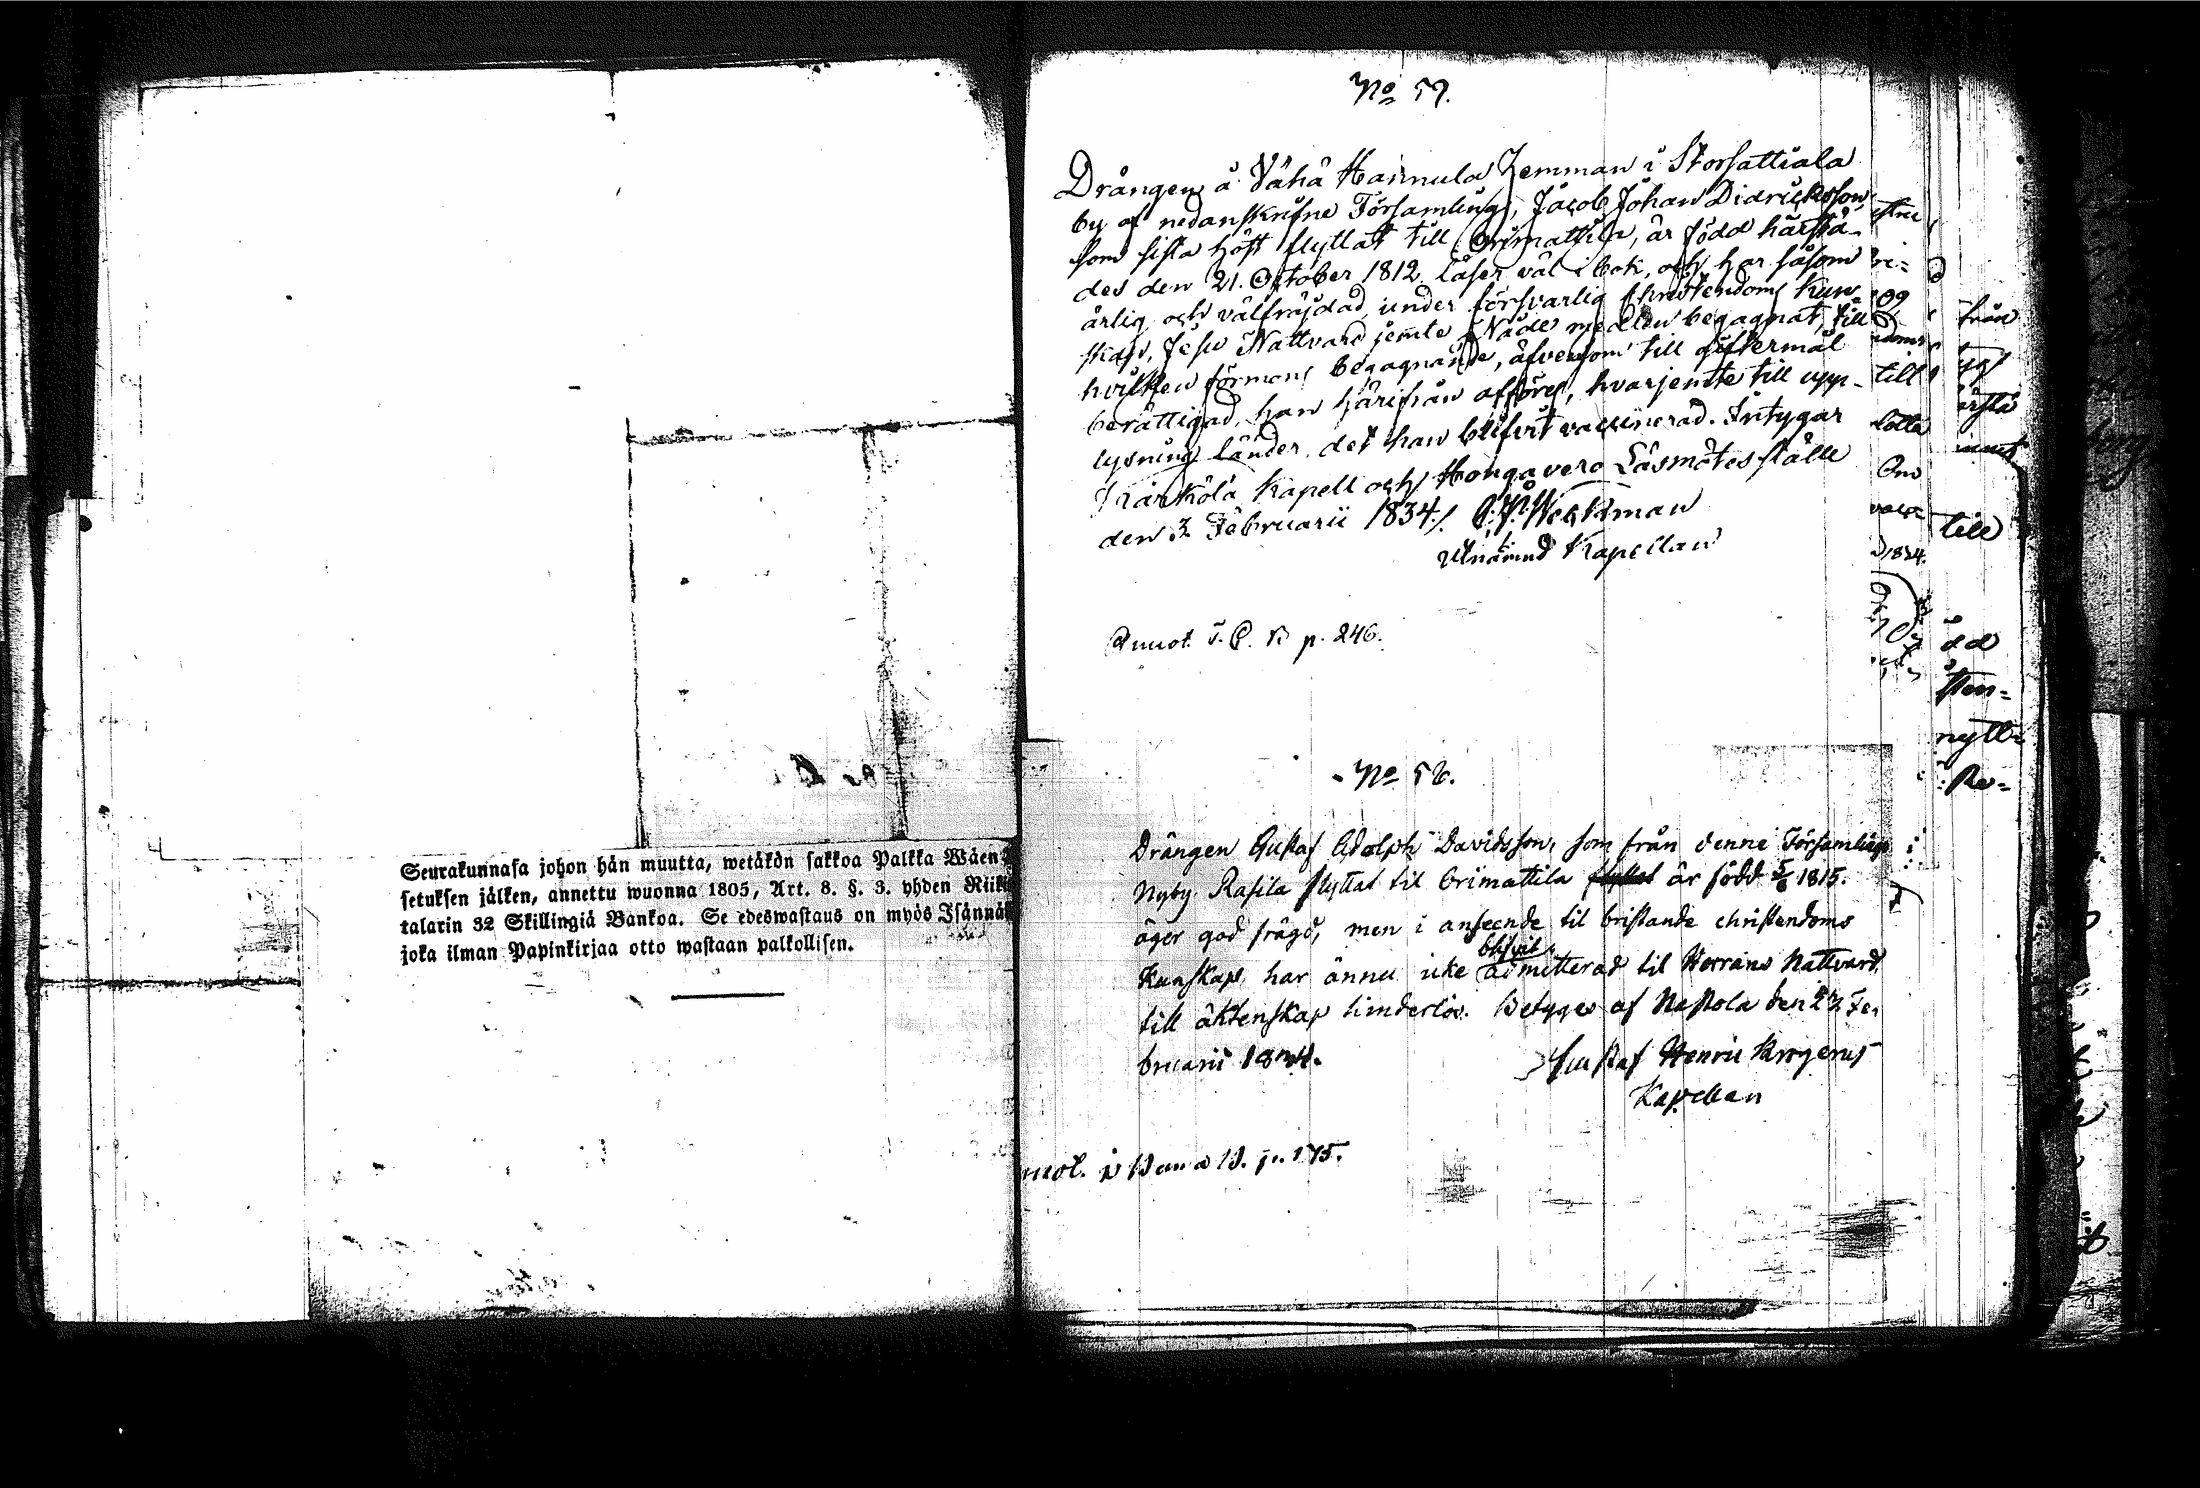 Seurakunnasa johon hän muutta, wetäkön sakkoa Palkka Wäen
setuksen jälken, annettu wuonna 1805, Art. 8. §. 3. yhden Riiki
talarin 32 Skillingiä Bankoa. Se edeswastaus on myös Isännäl
joka ilman Papinkirjaa otto wastaan palkollisen.
No 57.
Drängen å Vähä Hannula Hemman i Storsattiala
by af nedanskrifne Församling, Jacob Johan Didricksson,
som sista höst flyttat till Orimattila, är född härstä-
des den 21. October 1812, läser väl i bok, och har såsom
ärlig och välfräjdad, under försvarlig Christendoms kun-
skap, Jesu Nattvard jemte Nåde medlen begagnat, till
hvilken förmons begagnande, äfvensom till giftermål
berättigad, han härifrån afföres, hvarjemte till upp-
lysning länder, det han blifvit vaccinerad. Intygar
Kärkölä Kapell och Hongavero Läsmötes ställe
den 3 Februarii 1834./. Weckman
Utnämnd Kapellan
Annot. p. 246.
No 56.
Drängen Gustaf Adolph Davidsson, som från denne Församlings
Nyby Rasila flyttat til Orimattila är född 5/6 1815.
äger god frägd, men i anseende til bristande christendoms
blifvit
Kunskap har ännu icke admitterad til Herrans Nattvard,
till äktenskap hinderlös. Betyges af Nastola den 27 Fe-
bruarii 1834.
Gustaf Henric Krogerus
Kapellan
p. 175.
från
till
1834.
till